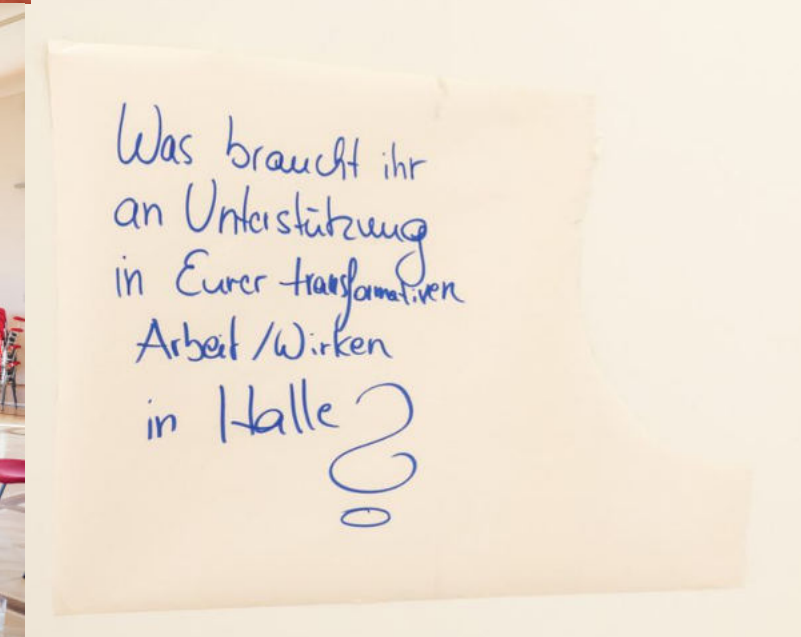 Was braucht ihr
an Unterstützung
in Eurer transformativen
Arbeit / Wirken
in Halle ?